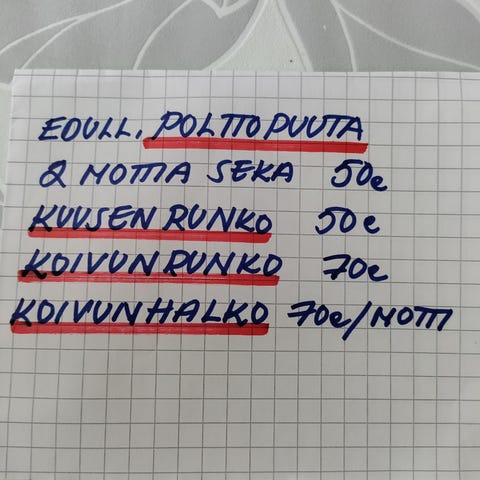 EDULL. POLTTOPUUTA
2 MOTTIA SEKA 50e
KUUSEN RUNKO 50e
KOIVUN RUNKO 70e
KOIVUN HALKO 70e/MOTTI